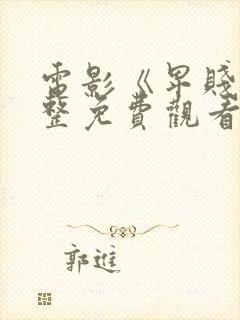 電影《卑賤
整免費觀看
郭進